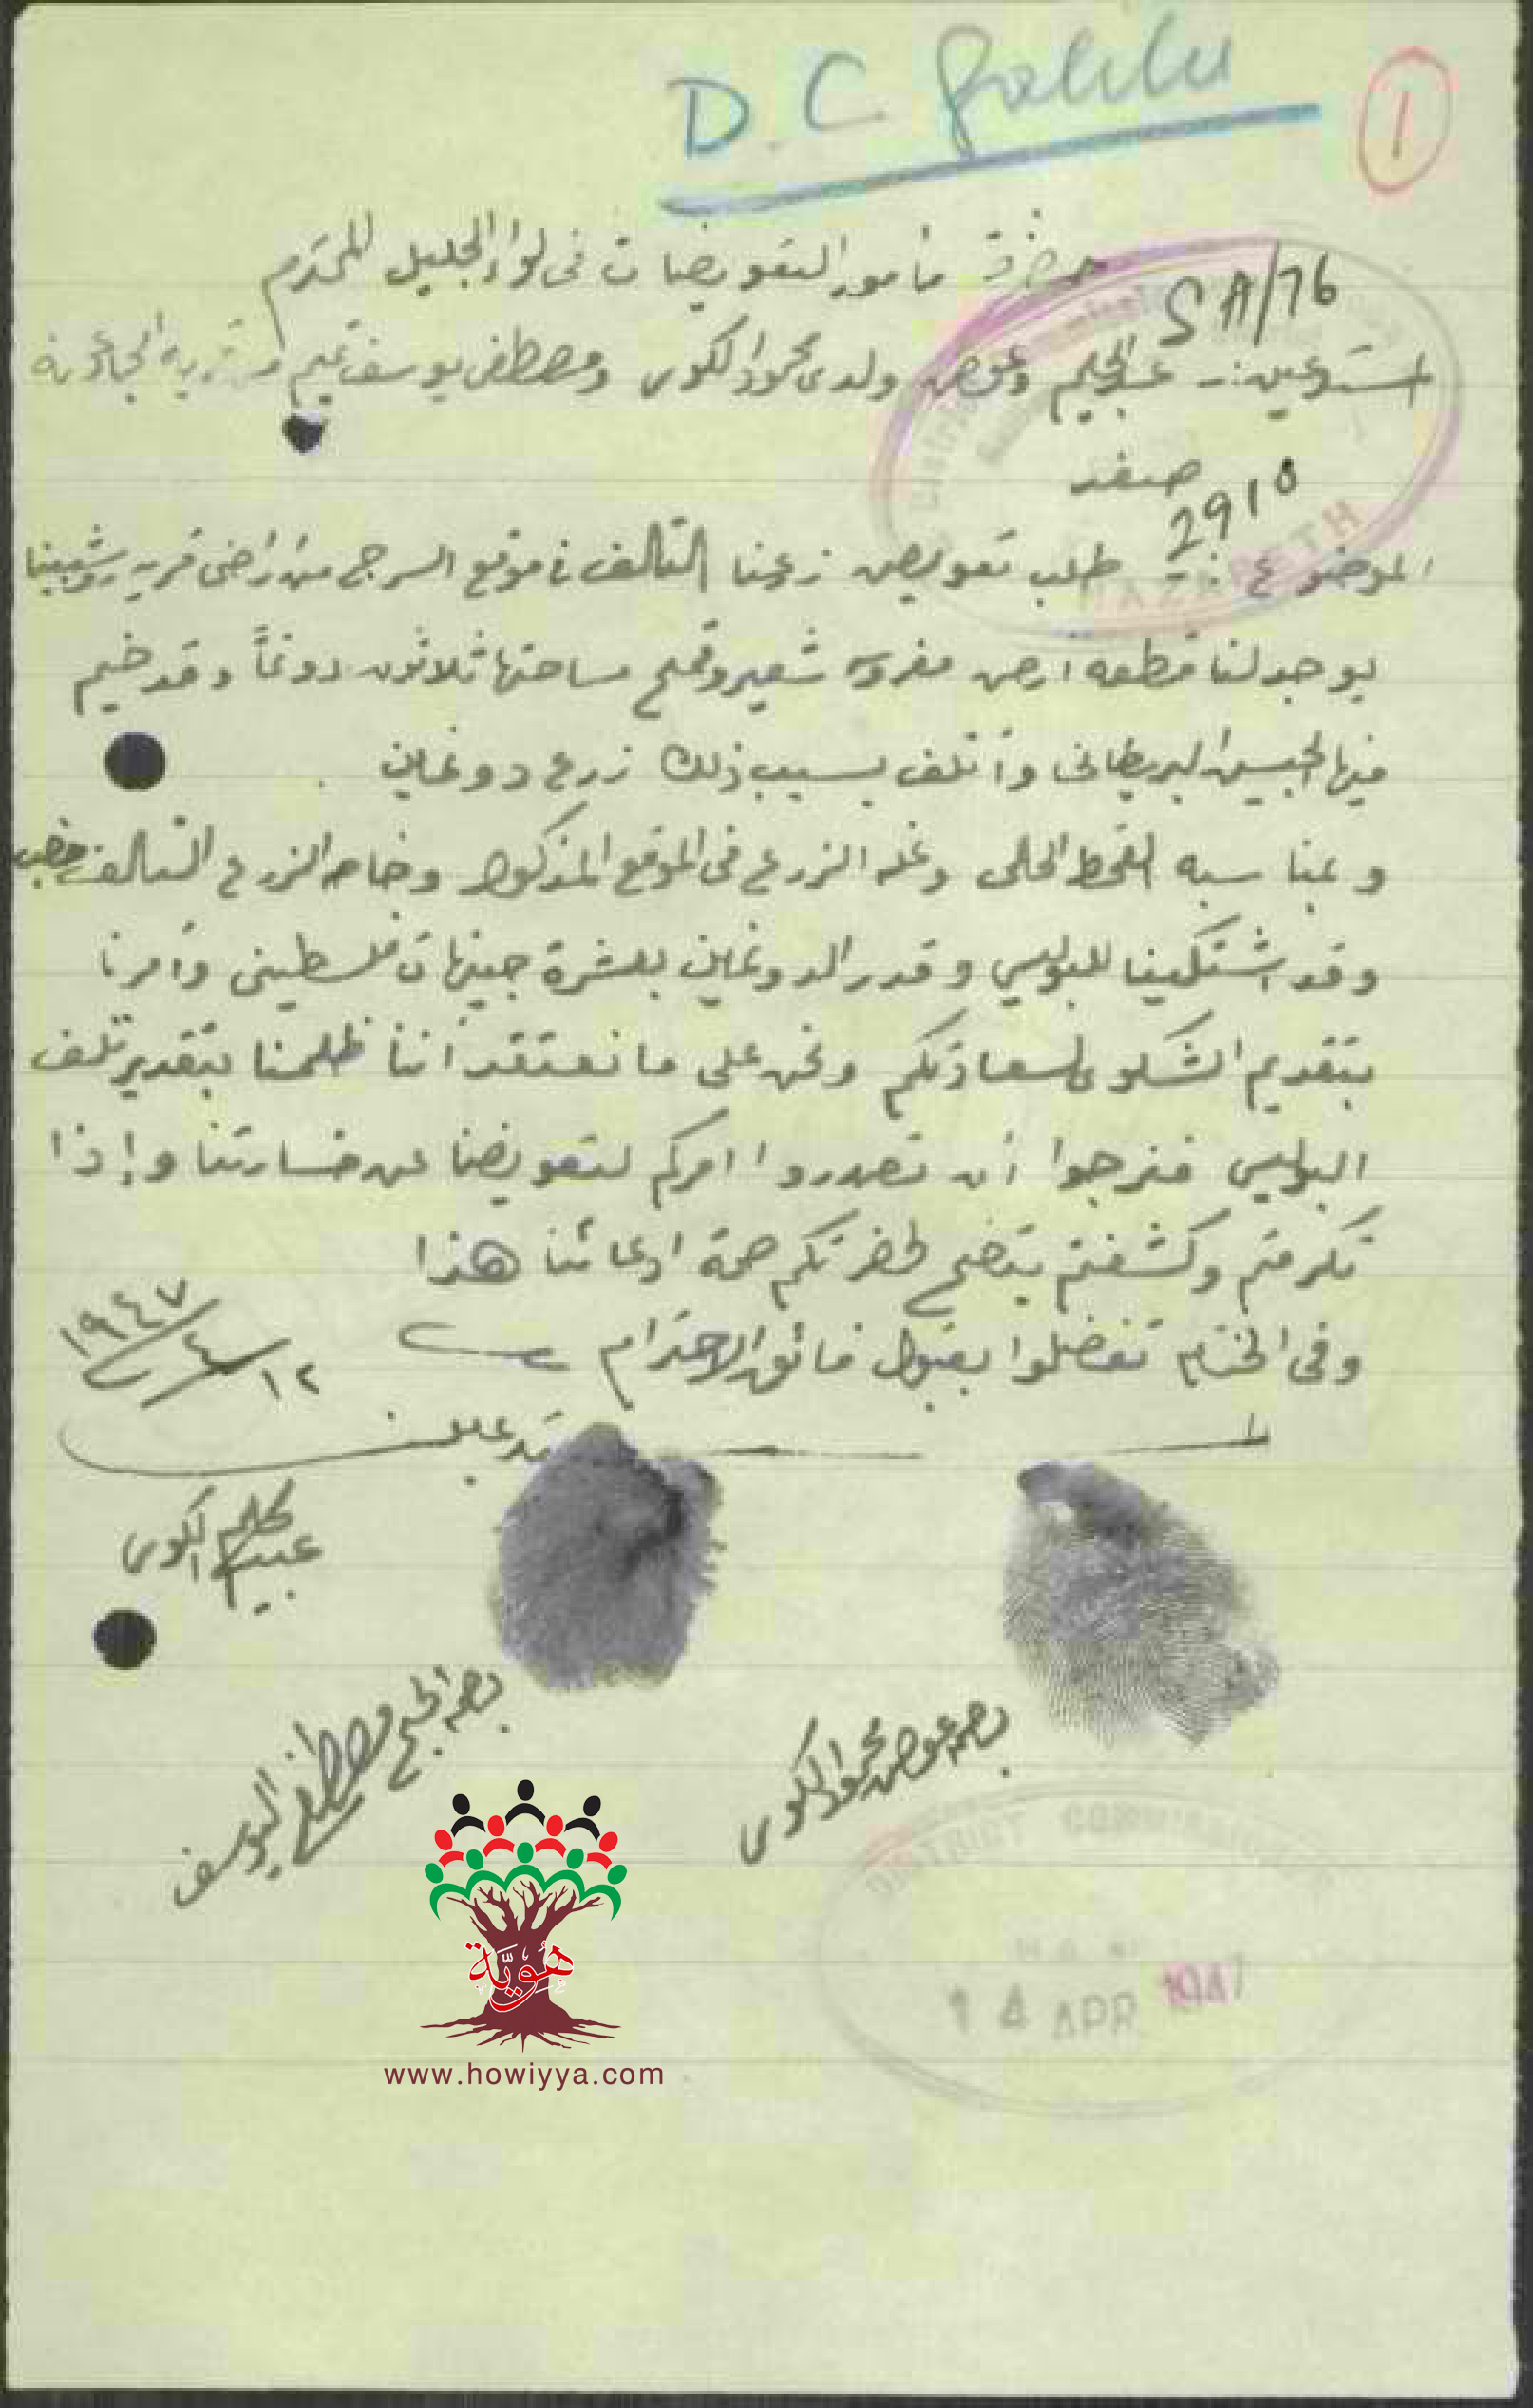 D.C Galilee
1
حضرة مأمور التعويضات في لواء الجليل المحترم
SA/76
المستدعين :- عبد الحليم وعوض ولدي محمود الكوى ومصطفى يوسف تميم من قرية الجاعونة
صفد
2918
الموضوع :- طلب تعويض زرعنا التالف في موقع السرج من اراضي قرية روشبينا
NAZARETH
يوجد لنا قطعه أرض مفروسه شعير وقمح مساحتها ثلاثون دونماً وقد خيم
فيها الجيش البريطاني وأتلف بسبب ذلك زرع دونمان
وبمناسبه القحط الحالي وغله الزرع في الموقع المذكور وخاصه الزرع التالف خصب
وقد اشتكينا للبوليس وقدر الدونمان بعشرة جنيهات فلسطيني وأمرنا
بتقديم الشكوى لسعادتكم ونحن على ما نعتقد اننا ظلمنا بتقدير تلف
البوليس فنرجوا أن تصدروا امركم لتعويضنا عن خسارتنا وإذا
تكرمتم وكشفتم يتضح لحضرتكم صحة ادعائنا هذا
وفي الختام تفضلوا بقبول فائق الاحترام
١٢/٤/١٩٤٧
المستدعين
عبد الحليم الكوى
بصمة الحج مصطفى اليوسف
بصمة عوض محمود الكوى
هُوِيَّة
www.howiyya.com
DISTRICT COMM
14 APR 1947